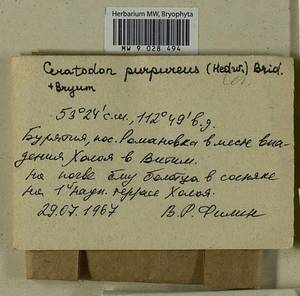 Herbarium MW, Bryophyta
MW 9 028 494
Ceratodon purpureus (Hedw.) Brid.
+Bryum
53°24' с.ш., 112°49' в.д.
Бурятия, пос. Романовка в месте впа-
дения Холоя в Витим.
На почве близ болотца в сосняке
на 1й надп. террасе Холоя.
29.07.1967 В.Р. Филин